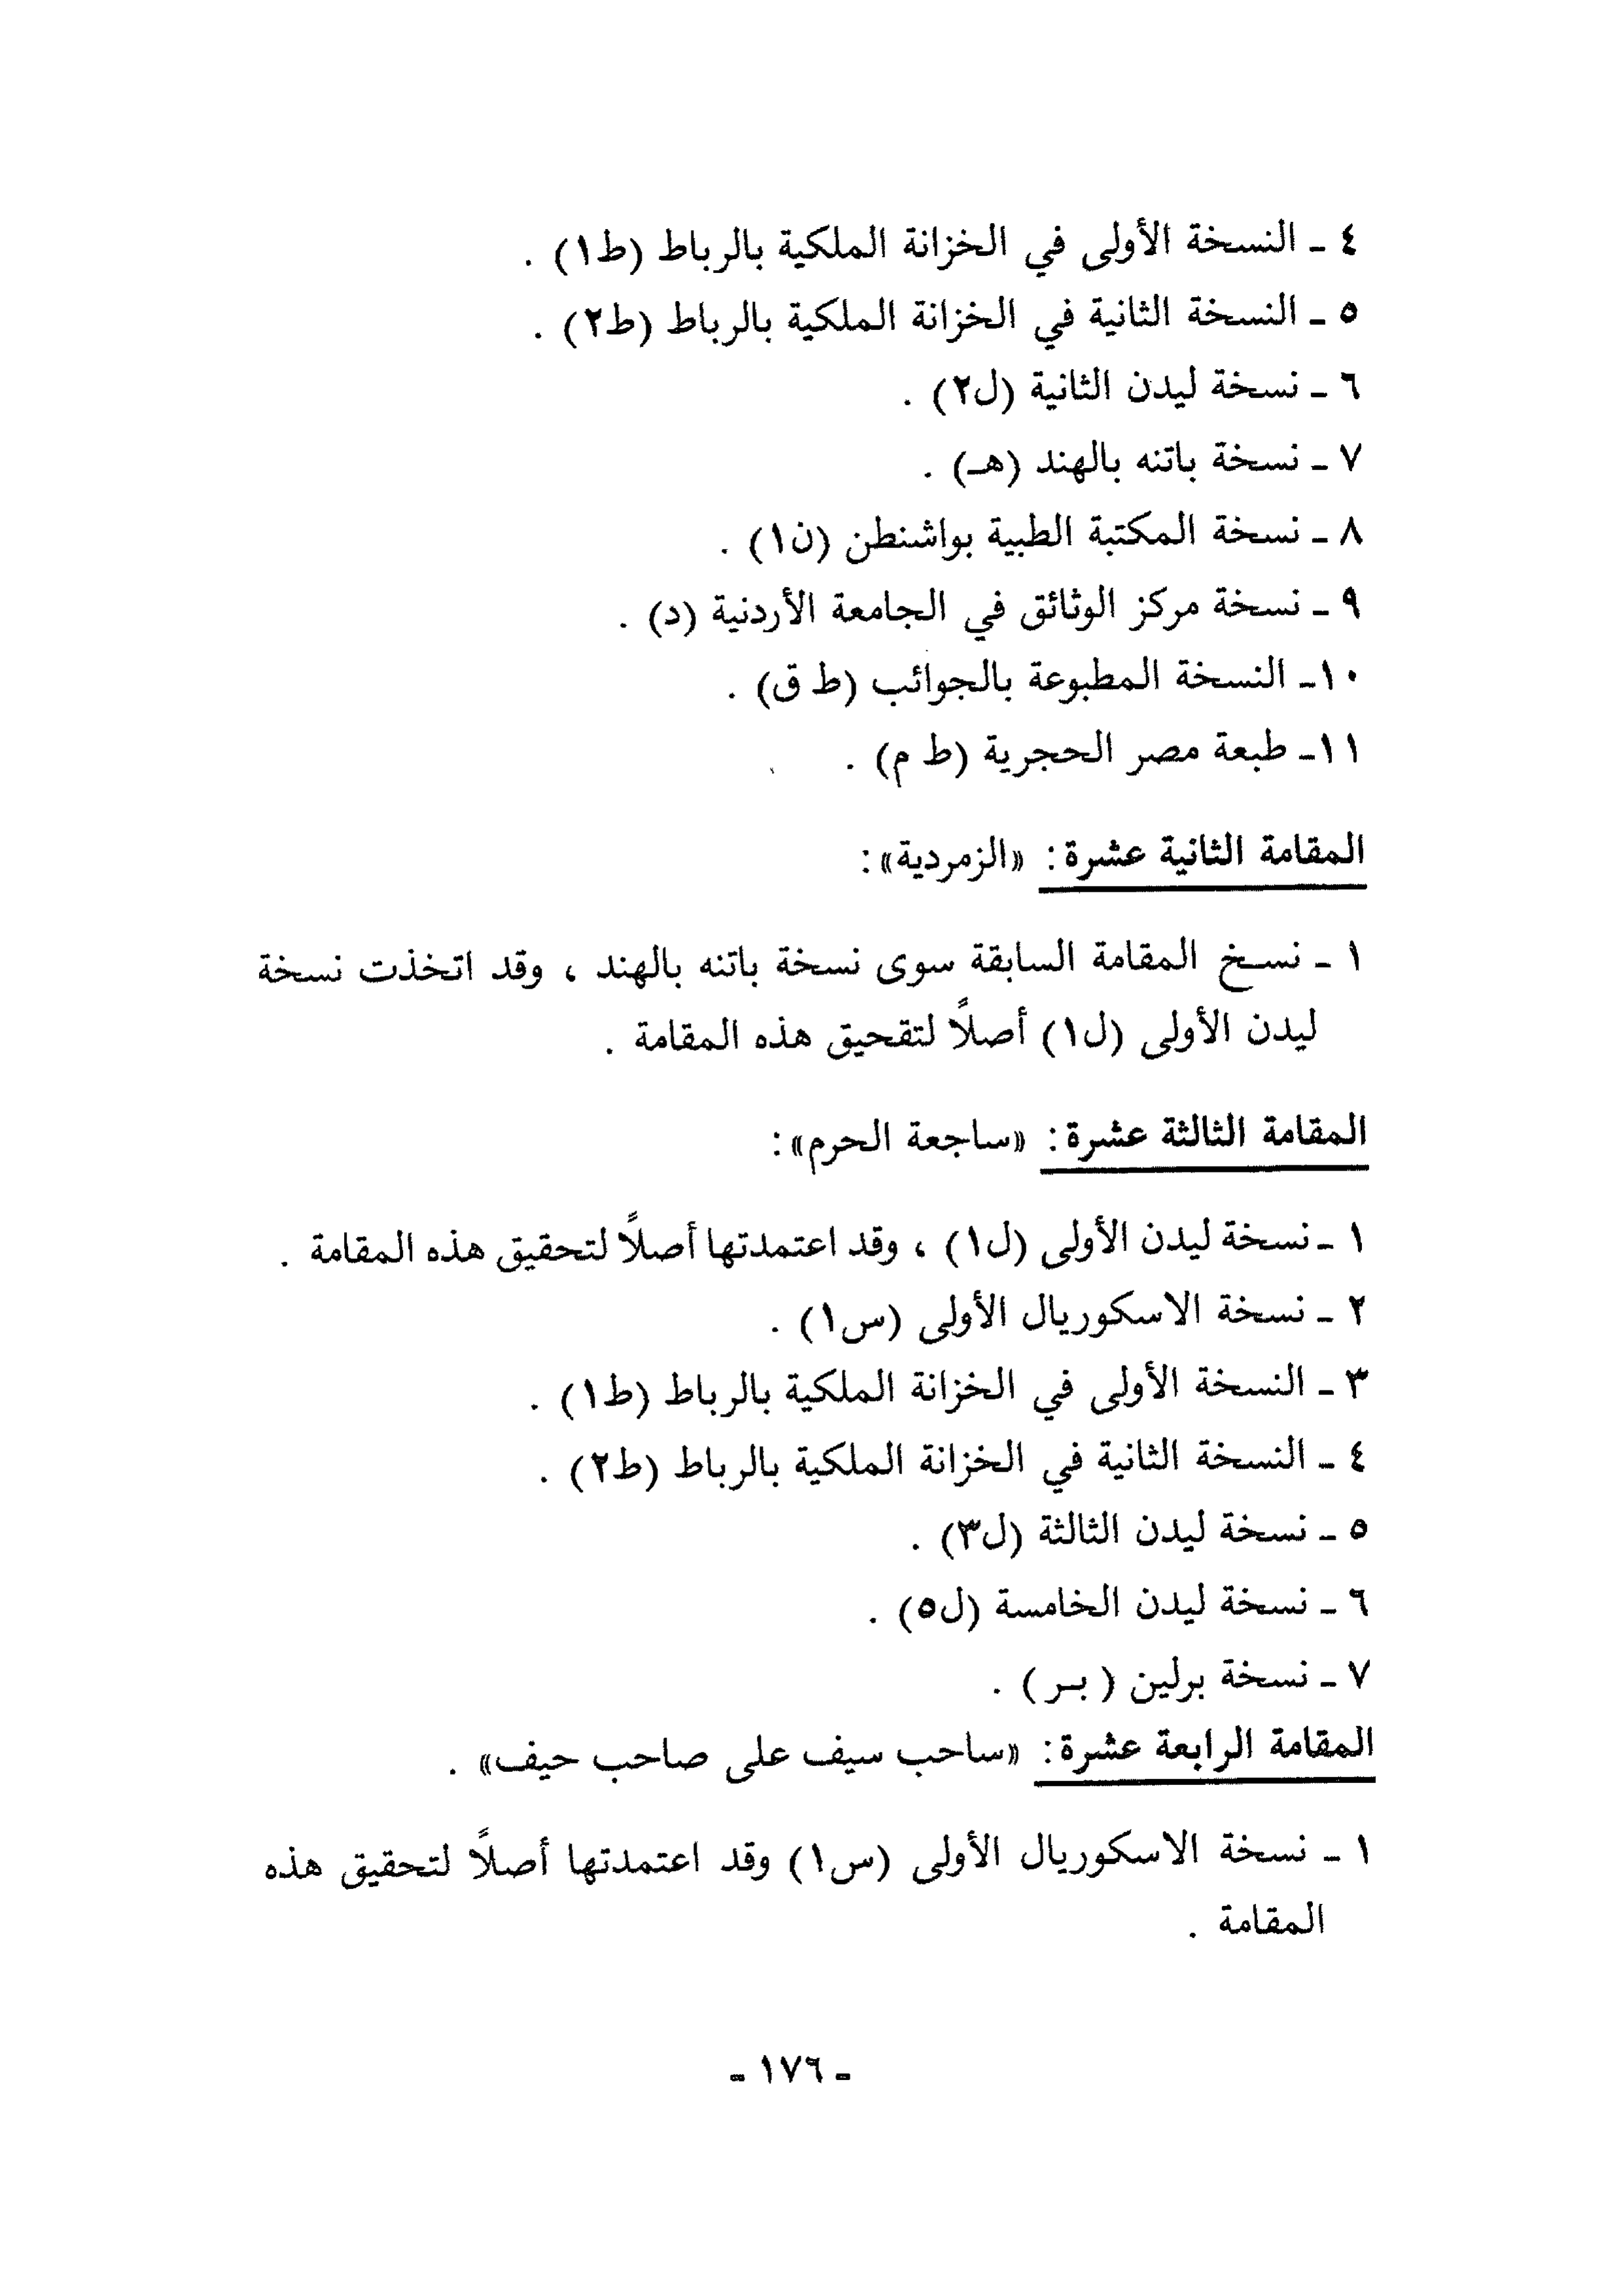 ٤ ـ النسخة الأولى في الخزانة الملكية بالرباط (ط١) .
٥ ـ النسخة الثانية في الخزانة الملكية بالرباط (ط٢) .
٦ ـ نسخة ليدن الثانية (ل٢) .
٧ ـ نسخة باتنه بالهند (هـ) .
٨ ـ نسخة المكتبة الطبية بواشنطن (ن١) .
٩ ـ نسخة مركز الوثائق في الجامعة الأردنية (د) .
١٠ـ النسخة المطبوعة بالجوائب (ط ق) .
١١ـ طبعة مصر الحجرية (ط م) .
المقامة الثانية عشرة: «الزمردية»:
١ ـ نسخ المقامة السابقة سوى نسخة باتنه بالهند ، وقد اتخذت نسخة
ليدن الأولى (ل١) أصلاً لتقحيق هذه المقامة .
المقامة الثالثة عشرة: «ساجعة الحرم»:
١ ـ نسخة ليدن الأولى (ل١) ، وقد اعتمدتها أصلاً لتحقيق هذه المقامة .
٢ ـ نسخة الاسكوريال الأولى (س١) .
٣ ـ النسخة الأولى في الخزانة الملكية بالرباط (ط١) .
٤ ـ النسخة الثانية في الخزانة الملكية بالرباط (ط٢) .
٥ ـ نسخة ليدن الثالثة (ل٣) .
٦ ـ نسخة ليدن الخامسة (ل٥) .
٧ ـ نسخة برلين ( بـر ) .
المقامة الرابعة عشرة: «ساحب سيف على صاحب حيف» .
١ ـ نسخة الاسكوريال الأولى (س١) وقد اعتمدتها أصلاً لتحقيق هذه
المقامة .
ـ ١٧٦ ـ